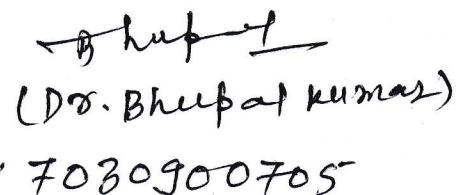 Bhupal
(Dr. Bhupal Kumar)
7030900705